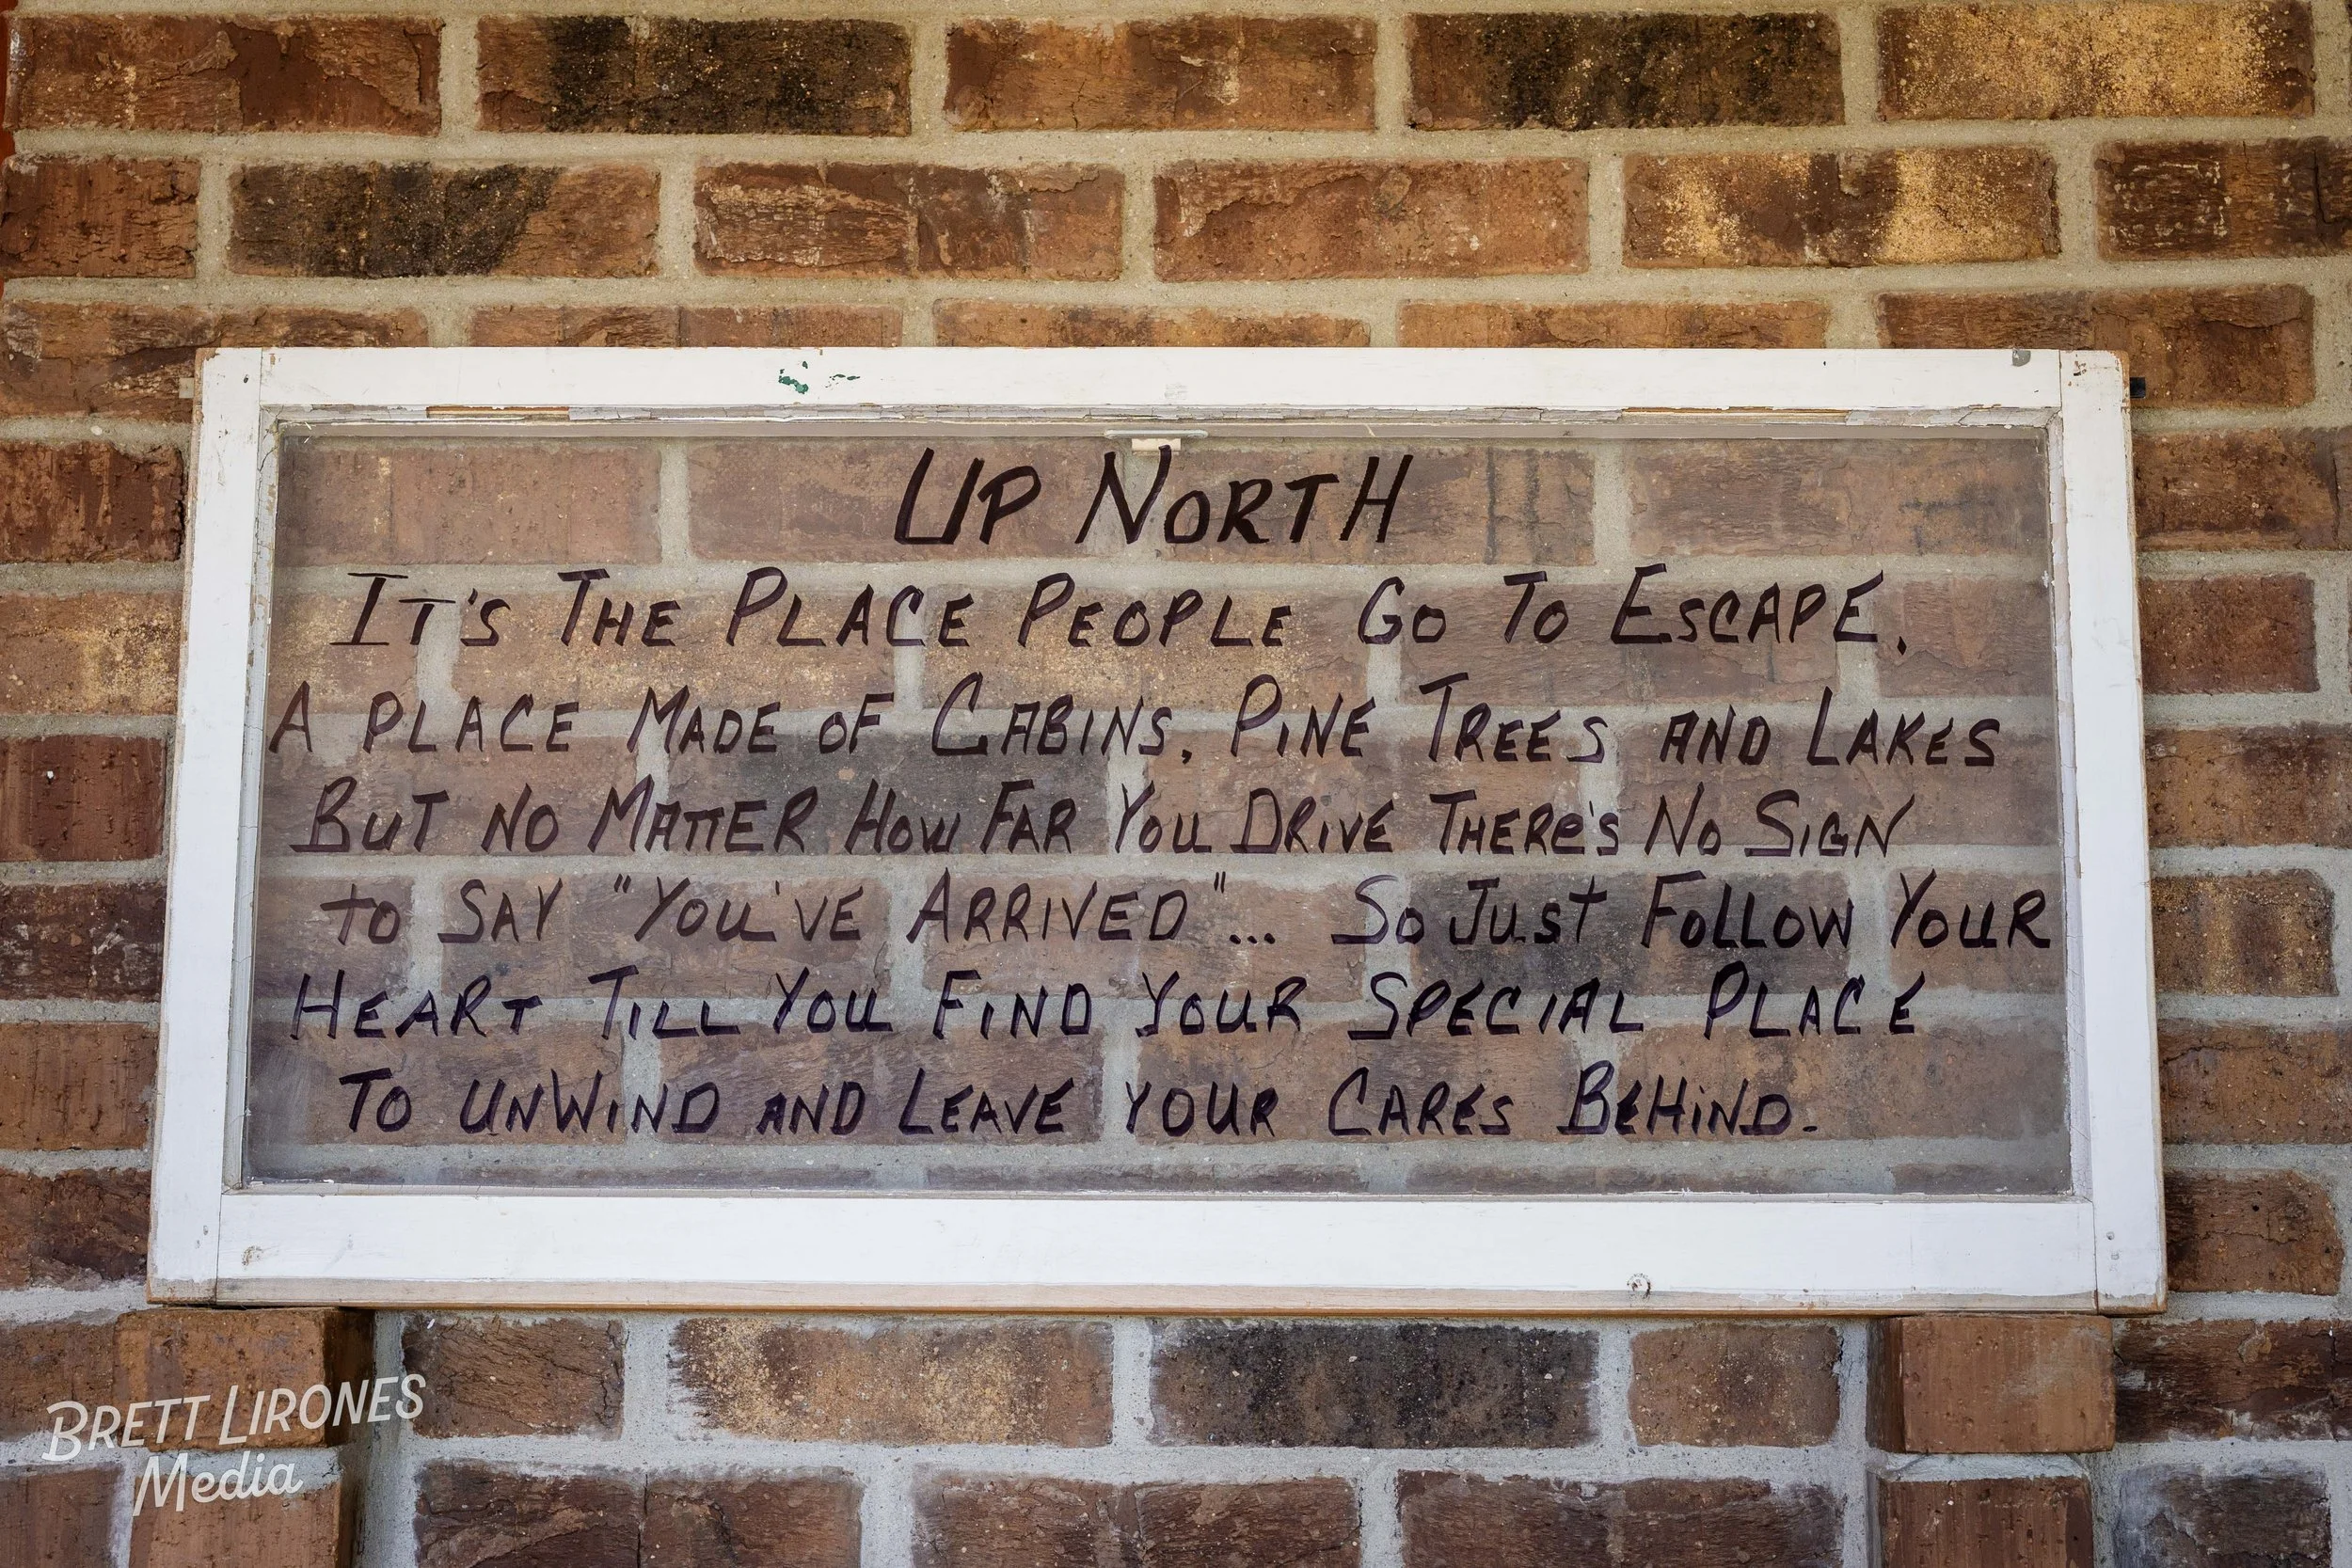 UP NORTH
IT'S THE PLACE PEOPLE GO TO ESCAPE,
A PLACE MADE OF CABINS, PINE TREES AND LAKES
BUT NO MATTER HOW FAR YOU DRIVE THERE'S NO SIGN
to SAY "YOU'VE ARRIVED"... SO JUST FOLLOW YOUR
HEART TILL YOU FIND YOUR SPECIAL PLACE
TO UNWIND AND LEAVE YOUR CARES BEHIND.
BRETT LIRONES
Media